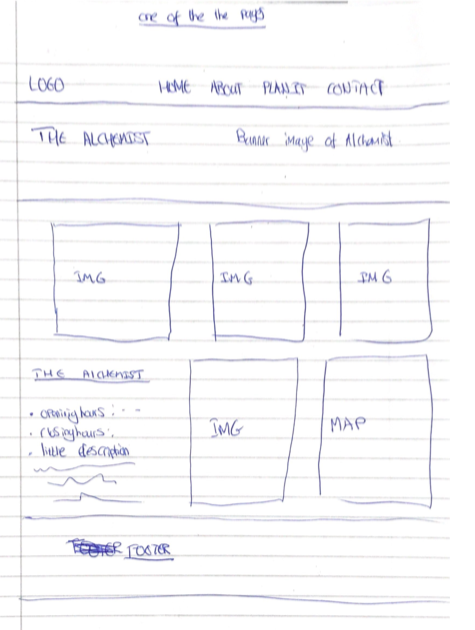 one of the the pages
LOGO HOME ABOUT PLANIT CONTACT
THE ALCHEMIST Banner image of Alchemist
IMG IMG IMG
THE ALCHEMIST
• opening hours: - - -
• closing hours:
• little description
IMG MAP
FOOTER